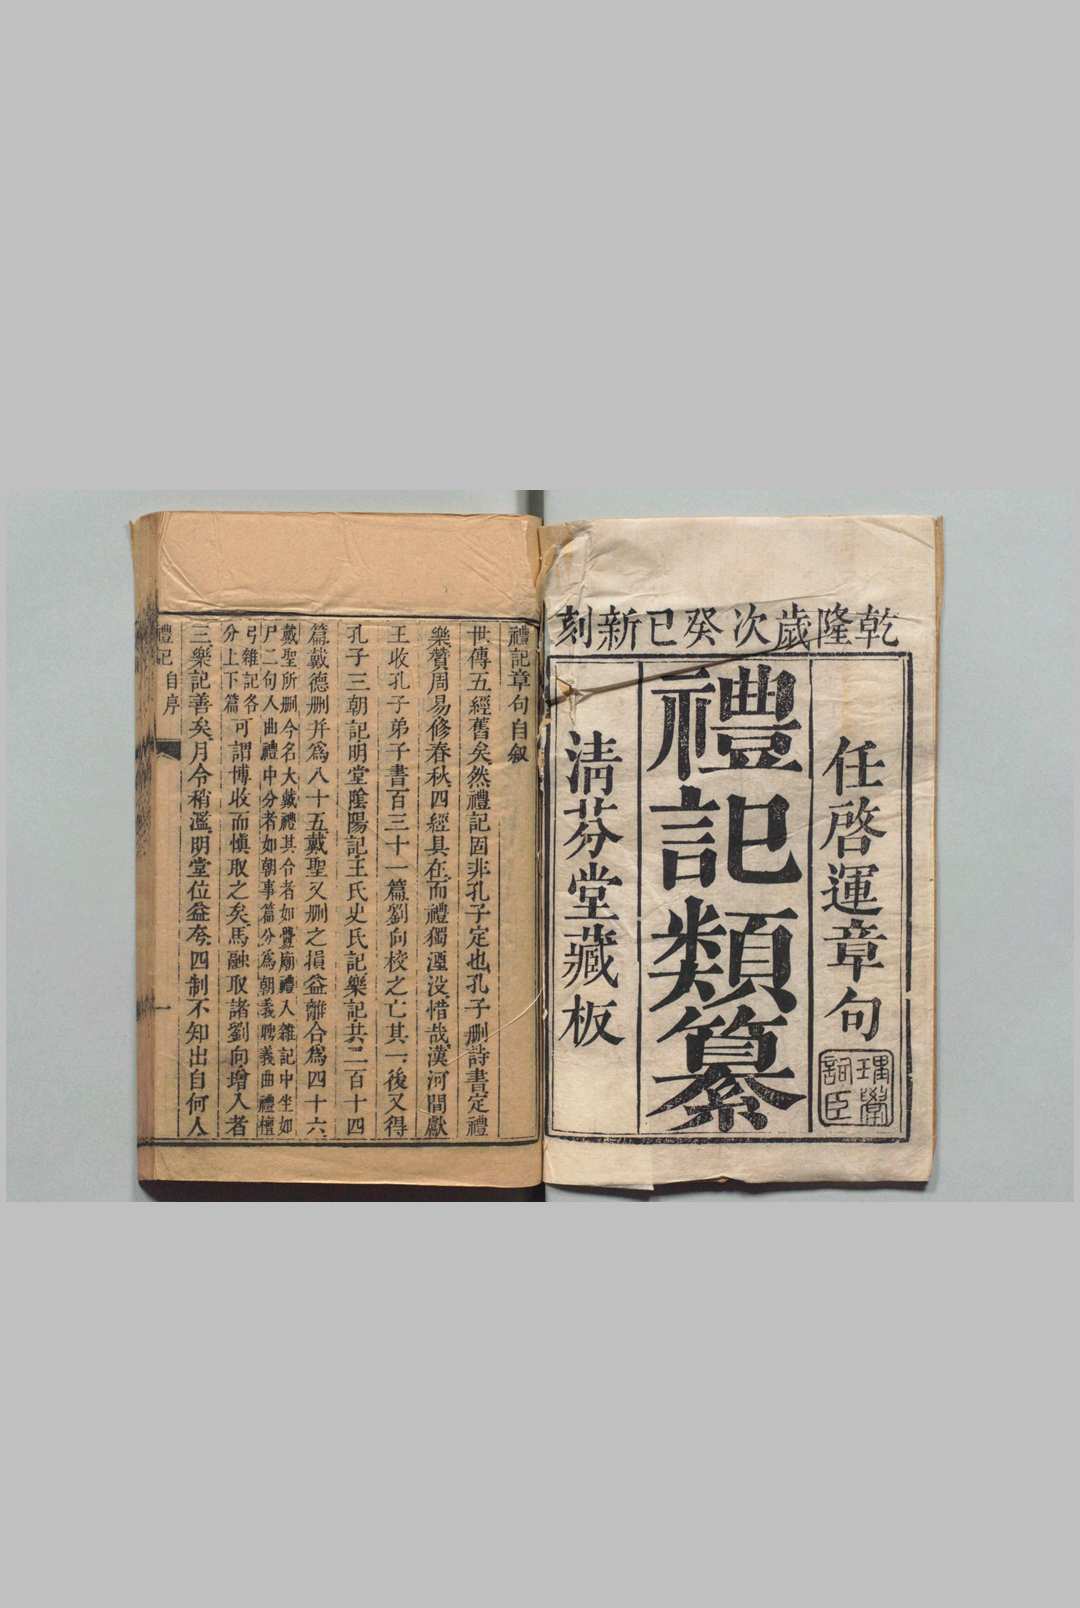 乾隆歲次癸巳新刻
任啓運章句
理學詞臣
禮記類纂
清芬堂藏板
禮記章句自叙
世傳五經舊矣然禮記固非孔子定也孔子刪詩書定禮
樂贊周易修春秋四經具在而禮獨湮没惜哉漢河間獻
王收孔子弟子書百三十一篇劉向校之亡其一後又得
孔子三朝記明堂陰陽記王氏史氏記樂記共二百十四
篇戴德刪并爲八十五戴聖又刪之損益離合爲四十六
戴聖所刪今名大戴禮其合者如釁廟禮入雜記中坐如
尸二句入曲禮中分者如朝事篇分爲朝義聘義曲禮檀
弓雜記各
分上下篇
可謂博收而慎取之矣馬融取諸劉向增入者
三樂記善矣月令稍濫明堂位益夸四制不知出自何人
禮記
自序
一